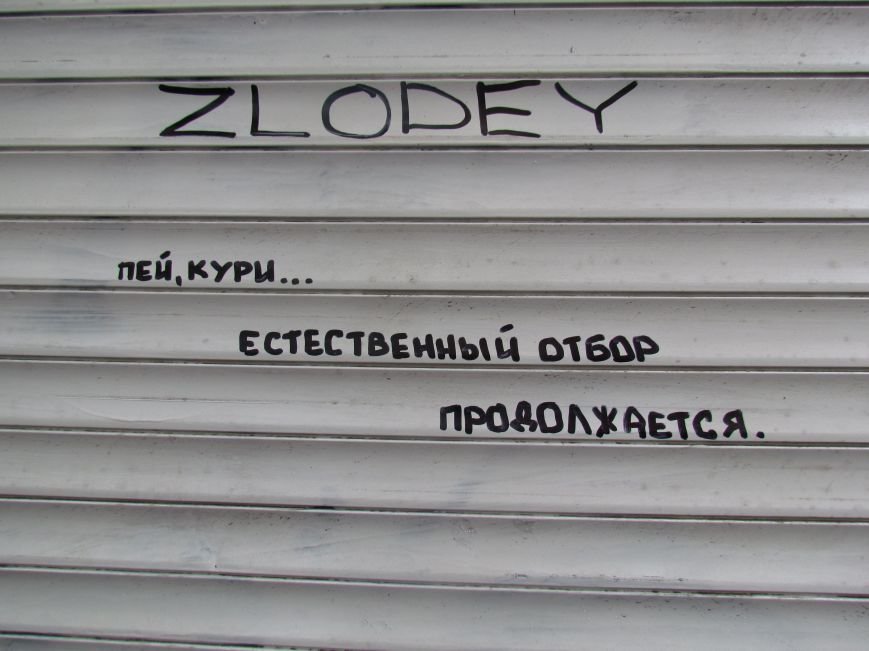 ZLODEY
ПЕЙ, КУРИ...
ЕСТЕСТВЕННЫЙ ОТБОР
ПРОДОЛЖАЕТСЯ.